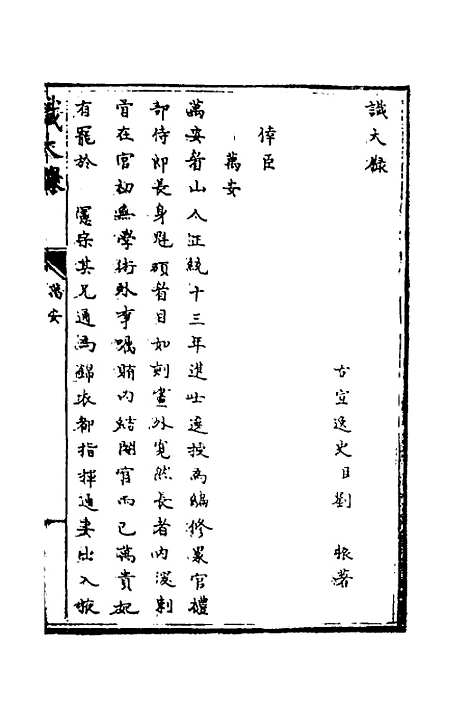 識大錄
古宣逸史臣劉　振著
倖臣
萬安
萬安眉山人正統十三年進士選授為編修累官禮
部侍郎長身魁碩眉目如刻畫外寬然長者內深刺
骨在官初無學術外事囑賄內結閹宦而已萬貴妃
有寵於　憲宗其兄通為錦衣都指揮通妻出入掖
識大錄
萬安